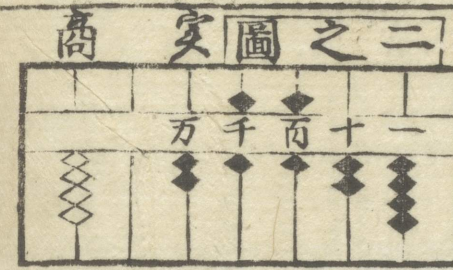 二之圖実商
一十百千万